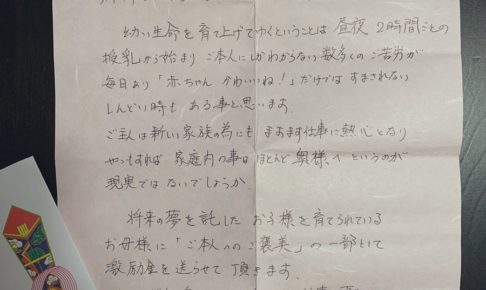 幼い生命を育て上げてゆくということは昼夜2時間ごとの
授乳から始まり ご本人にしかわからない数多くのご苦労が
毎日あり「赤ちゃん かわいいね!」だけではすまされない
しんどい時も ある事と思います。
ご主人は新しい家族の為にも ますます仕事に熱心となり
やっもすれば 家庭内の事は ほとんど奥様へ というのが
現実では ないでしょうか
将来の夢を託した お子様を育てられている
お母様に「ご本人へのご褒美」の一部として
激励金を送らせて頂きます。